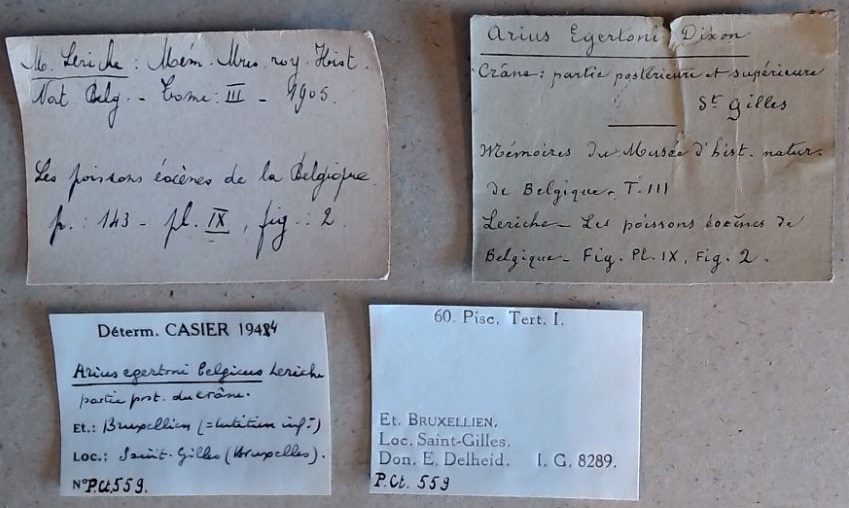 M. Leriche : Mém. Mus. roy. Hist.
Nat Belg. - Tome: III - 1905.
Les poissons éocènes de la Belgique.
p. : 143 - pl. IX, fig. : 2.
Arius Egertoni Dixon
Crâne: partie postérieure et supérieure
St Gilles
Mémoires du Musée d'hist. natur.
de Belgique - T. III
Leriche - Les poissons éocènes de
Belgique - Fig. Pl. IX, Fig. 2.
Déterm. CASIER 194
Arius egertoni belgicus Leriche
partie post. du crâne.
Et.: Bruxellien (= lutétien inf.)
Loc.: Saint-Gilles (Bruxelles).
N° P.Ct.559.
60. Pisc. Tert. I.
Et. BRUXELLIEN.
Loc. Saint-Gilles.
Don. E. Delheid. I. G. 8289.
P.Ct. 559